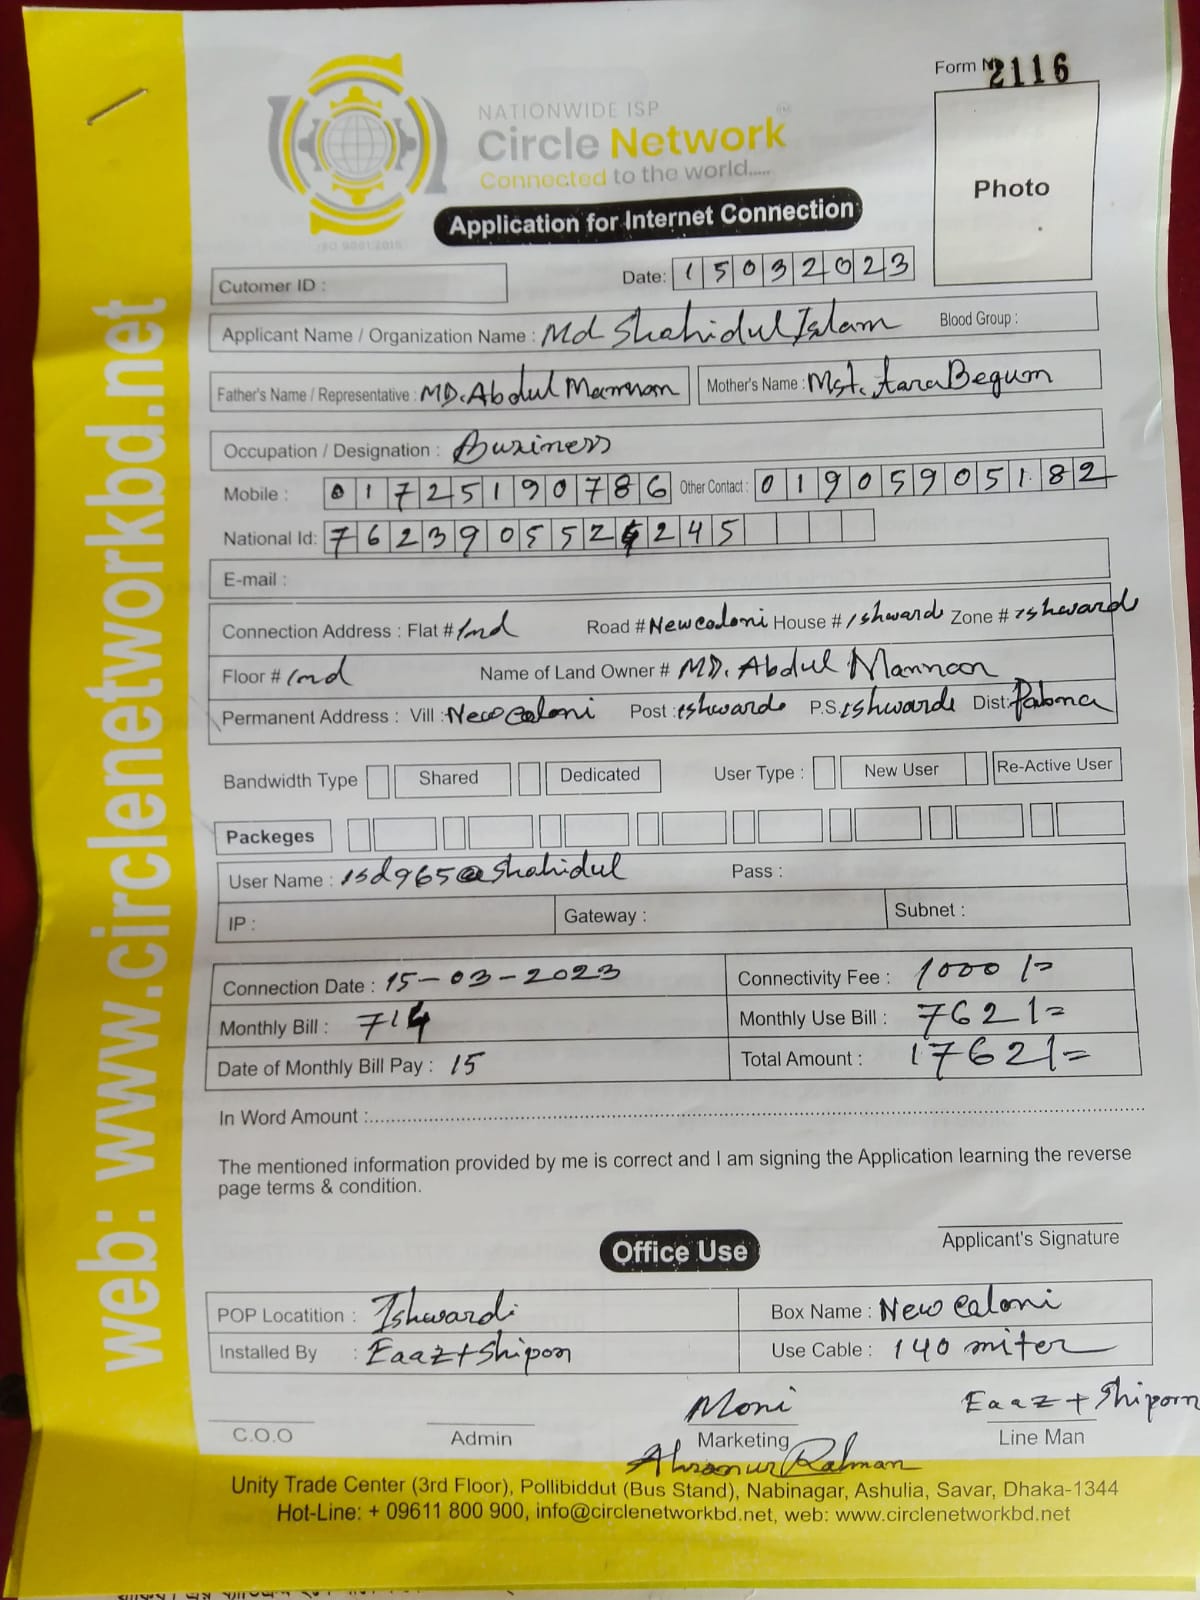 Form No 2116
NATIONWIDE ISP
Circle Network
Connected to the world.....
ISO 9001:2015
Application for Internet Connection
Photo
Cutomer ID :
Date: 15032023
Applicant Name / Organization Name : Md Shahidul Islam Blood Group :
Father's Name / Representative : MD. Abdul Mannan Mother's Name : Mst. tara Begum
Occupation / Designation : Business
Mobile : 01725190786 Other Contact : 01905905182
National Id: 7623905525245
E-mail :
Connection Address : Flat # 1nd Road # New caloni House # ishwardi Zone # ishwardi
Floor # 1nd Name of Land Owner # MD. Abdul Mannan
Permanent Address : Vill : New Caloni Post : eshwardi P.S. ishwardi Dist: Pabna
Bandwidth Type Shared Dedicated User Type : New User Re-Active User
Packeges
User Name : isd965@shahidul Pass :
IP : Gateway : Subnet :
Connection Date : 15-03-2023 Connectivity Fee : 1000/=
Monthly Bill : 714 Monthly Use Bill : 762/=
Date of Monthly Bill Pay : 15 Total Amount : 1762/=
In Word Amount :
The mentioned information provided by me is correct and I am signing the Application learning the reverse
page terms & condition.
Applicant's Signature
Office Use
POP Locatition : Ishwardi Box Name : New Caloni
Installed By : Eaaz+Shipon Use Cable : 140 miter
Moni Eaaz + Shipon
C.O.O Admin Marketing Line Man
Rahman
Unity Trade Center (3rd Floor), Pollibiddut (Bus Stand), Nabinagar, Ashulia, Savar, Dhaka-1344
Hot-Line: + 09611 800 900, info@circlenetworkbd.net, web: www.circlenetworkbd.net
web: www.circlenetworkbd.net